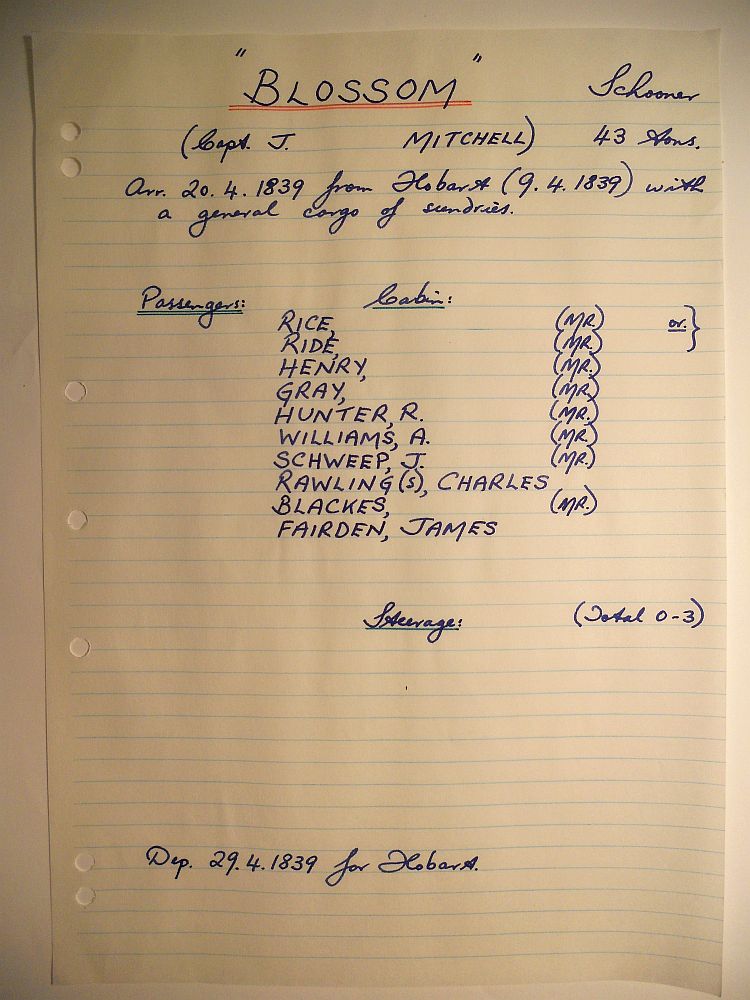 "BLOSSOM" Schooner
(Capt. J. MITCHELL) 43 tons.
Arr. 20.4.1839 from Hobart (9.4.1839) with
a general cargo of sundries.
Passengers: Cabin:
RICE, (MR.) or }
RIDE, (MR.)
HENRY, (MR.)
GRAY, (MR.)
HUNTER, R. (MR.)
WILLIAMS, A. (MR.)
SCHWEEP, J. (MR.)
RAWLING(S), CHARLES
BLACKES, (MR.)
FAIRDEN, JAMES
Steerage: (Total 0-3)
Dep. 29.4.1839 for Hobart.